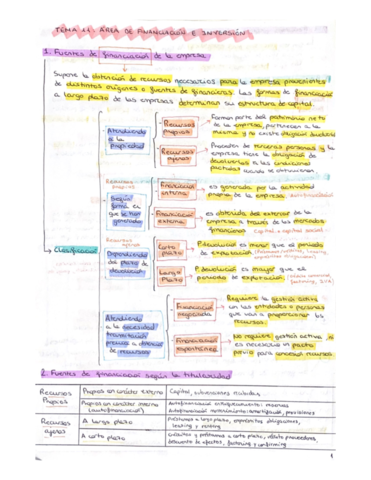 TEMA 11: ÁREA DE FINANCIACIÓN E INVERSIÓN
1. Fuentes de financiación de la empresa
Supone la obtención de recursos necesarios para la empresa provenientes
de distintos orígenes o fuentes de financieras. Las formas de financiación
a largo plazo de las empresas determinan su estructura de capital.
Clasificación
Atendiendo
a la
Propiedad
Recursos
propios
Forman parte del patrimonio neto
de la empresa, pertenecen a la
misma y no existe obligación devolverlo
Recursos
ajenos
Proceden de terceras personas y la
empresa tiene la obligación de
devolverlos a las condiciones
pactadas cuando se obtuvieron
Recursos
propios
Según
forma en
que se han
generado
Financiación
interna
es generada por la actividad
propia de la empresa. Autofinanciación
Financiación
externa
es obtenida del exterior de la
empresa a través de los mercados
financieros Capital o capital social
Recursos
ajenos
Dependiendo
del plazo de
devolución
Corto
plazo
P. devolución es menor que el periodo
de explotación
Largo
Plazo
P. devolución es mayor que el
periodo de explotación.
Atendiendo
a la necesidad
previa a
de recursos
Financiación
negociada
Requiere la gestión activa
con las entidades o personas
que van a proporcionar los
recursos.
Financiación
espontánea
No requiere gestión activa, ni
es necesario un pacto
previo para conceder recursos.
2. Fuentes de financiación según la titularidad
Recursos
Propios
Propios con carácter externo
Capital, subvenciones recibidas
Propios con carácter interno
(autofinanciación)
Autofinanciación enriquecimiento: reservas
Autofinanciación mantenimiento: amortización, provisiones
Recursos
ajenos
A largo plazo
Préstamos a largo plazo, empréstitos obligaciones,
leasing y renting
A corto plazo
Créditos y préstamos a corto plazo, crédito proveedores,
descuento de efectos, factoring y confirming
1